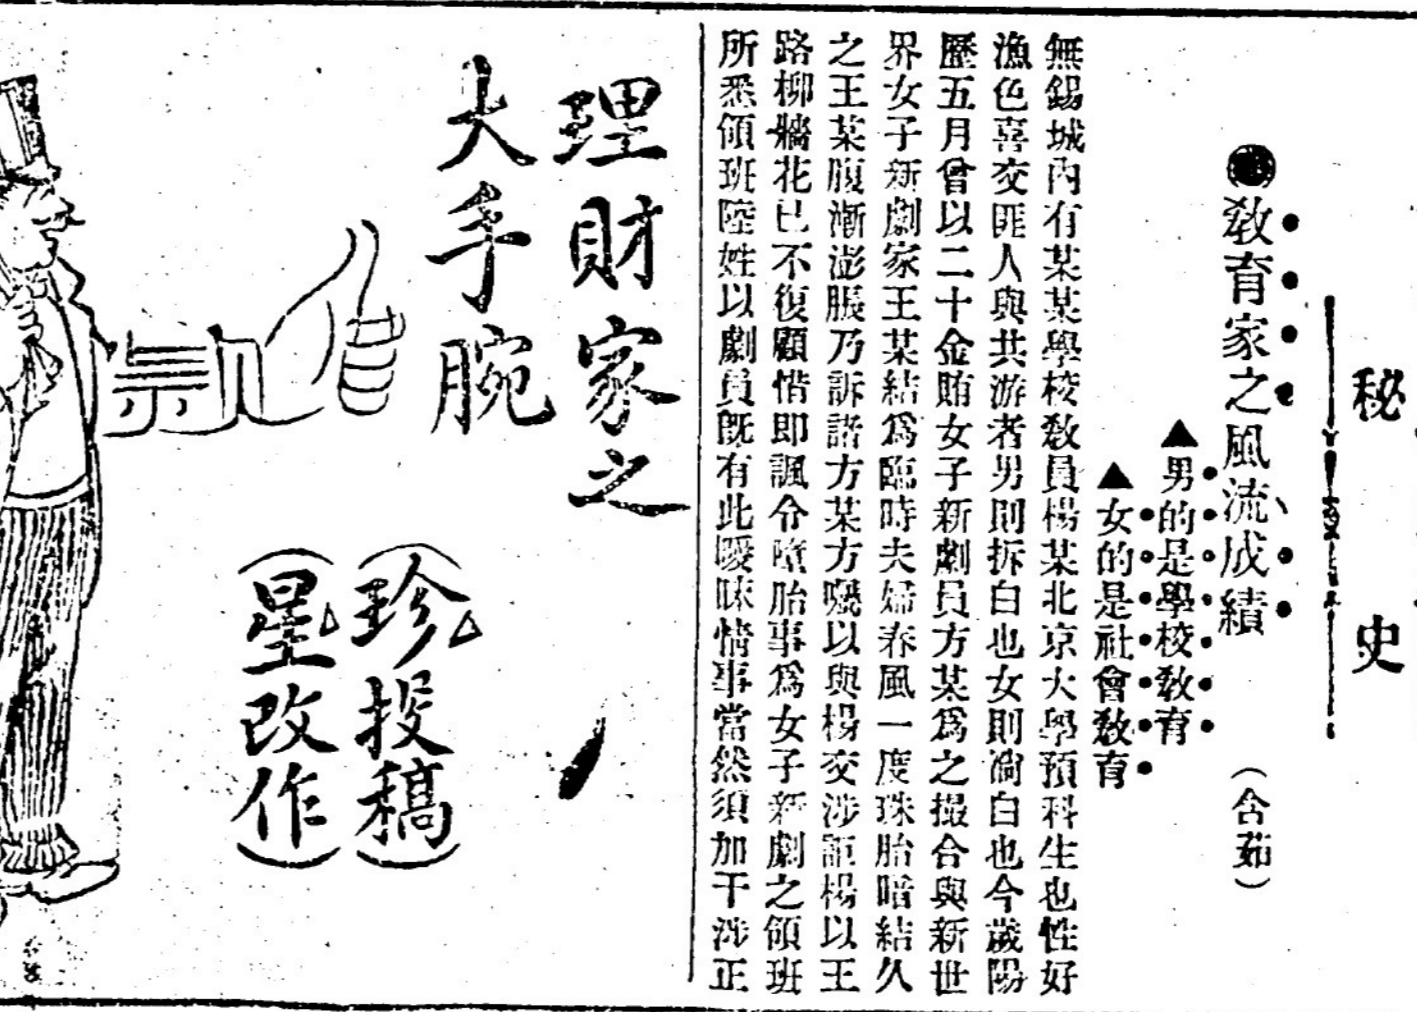 秘史
教育家之風流成績 （含茹）
▲男的是學校教育
▲女的是社會教育
無錫城內有某某學校教員楊某北京大學預科生也性好
漁色喜交匪人與共游者男則拆白也女則淌白也今歲陽
歷五月曾以二十金賄女子新劇員方某為之撮合與新世
界女子新劇家王某結為臨時夫婦春風一度珠胎暗結久
之王某腹漸澎脹乃訴諸方某方囑以與楊交涉詎楊以王
路柳牆花已不復顧惜即諷令墮胎事為女子新劇之領班
所悉領班陸姓以劇員既有此曖昧情事當然須加干涉正
理財家之
大手腕
（珍投稿）
（星改作）
借
票